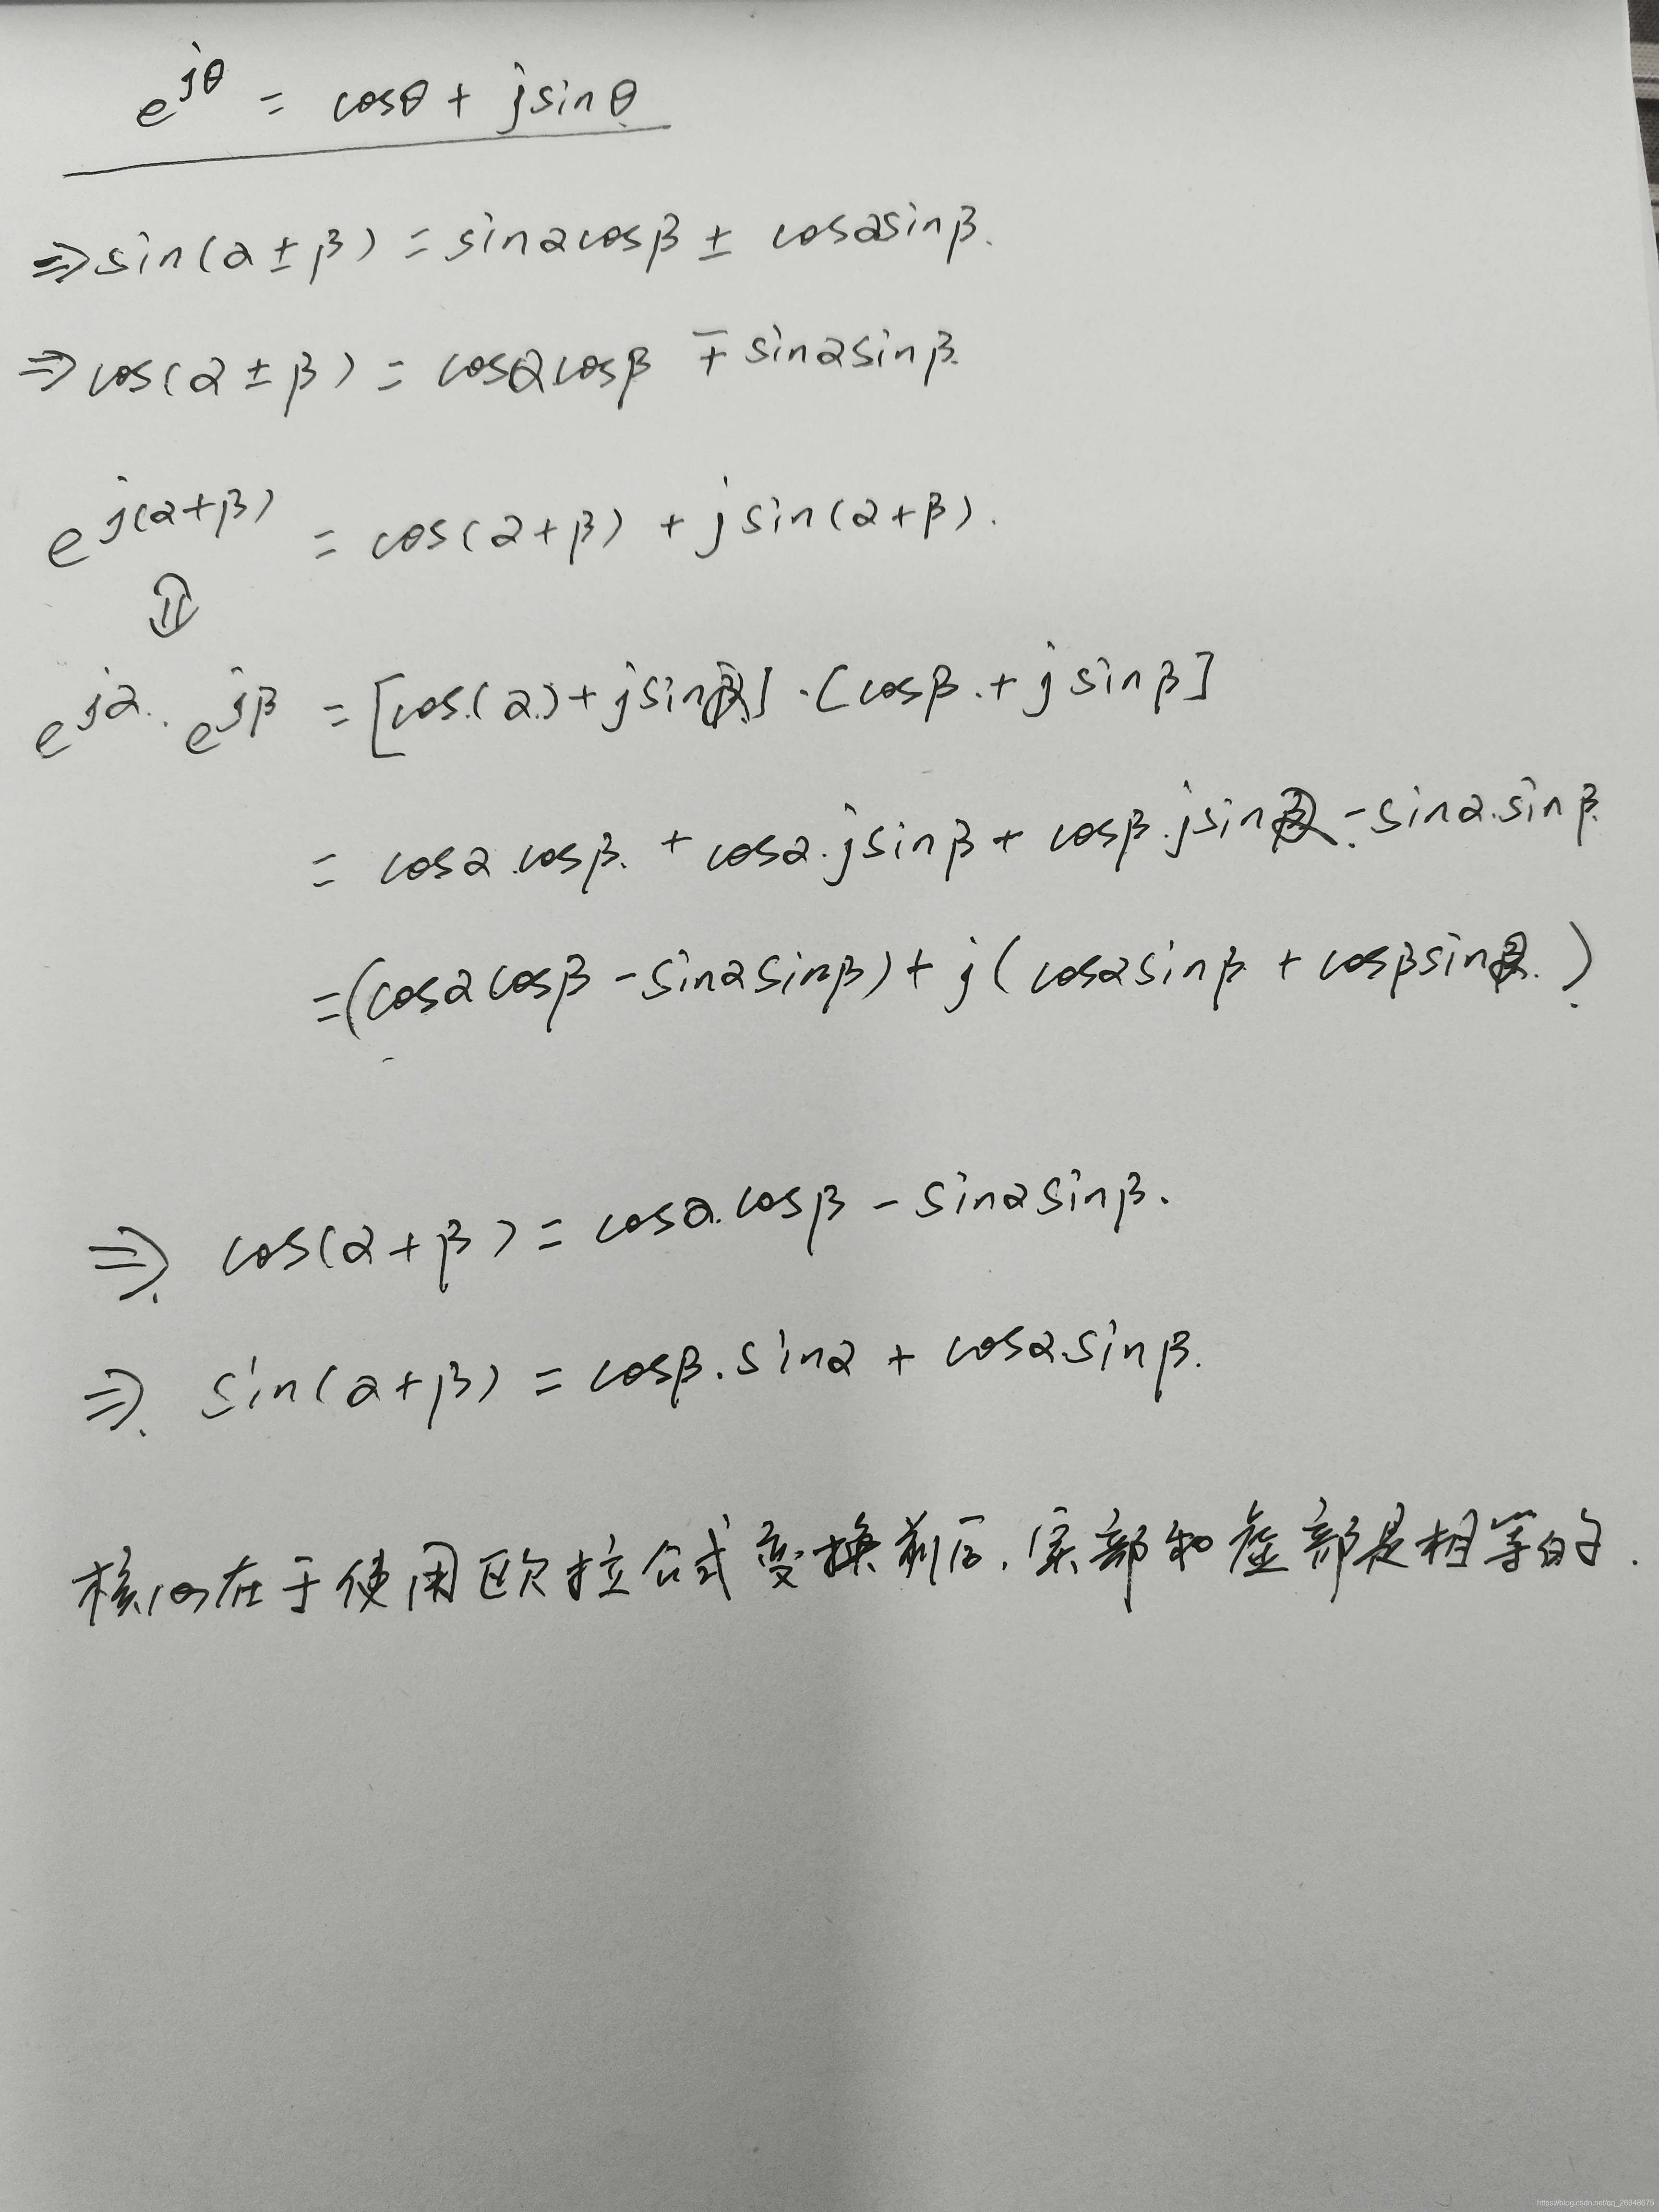 e^{jθ} = cosθ + jsinθ
⇒ sin(α ± β) = sinαcosβ ± cosαsinβ.
⇒ cos(α ± β) = cosαcosβ ∓ sinαsinβ.
e^{j(α+β)} = cos(α+β) + jsin(α+β).
⇕
e^{jα} · e^{jβ} = [cos(α) + jsinα] · [cosβ + jsinβ]
= cosα·cosβ + cosα·jsinβ + cosβ·jsinα - sinα·sinβ
= (cosαcosβ - sinαsinβ) + j(cosαsinβ + cosβsinα)
⇒ cos(α+β) = cosα·cosβ - sinαsinβ.
⇒ sin(α+β) = cosβ·sinα + cosαsinβ.
核心在于使用欧拉公式变换前后,实部和虚部是相等的.
https://blog.csdn.net/qq_26948675